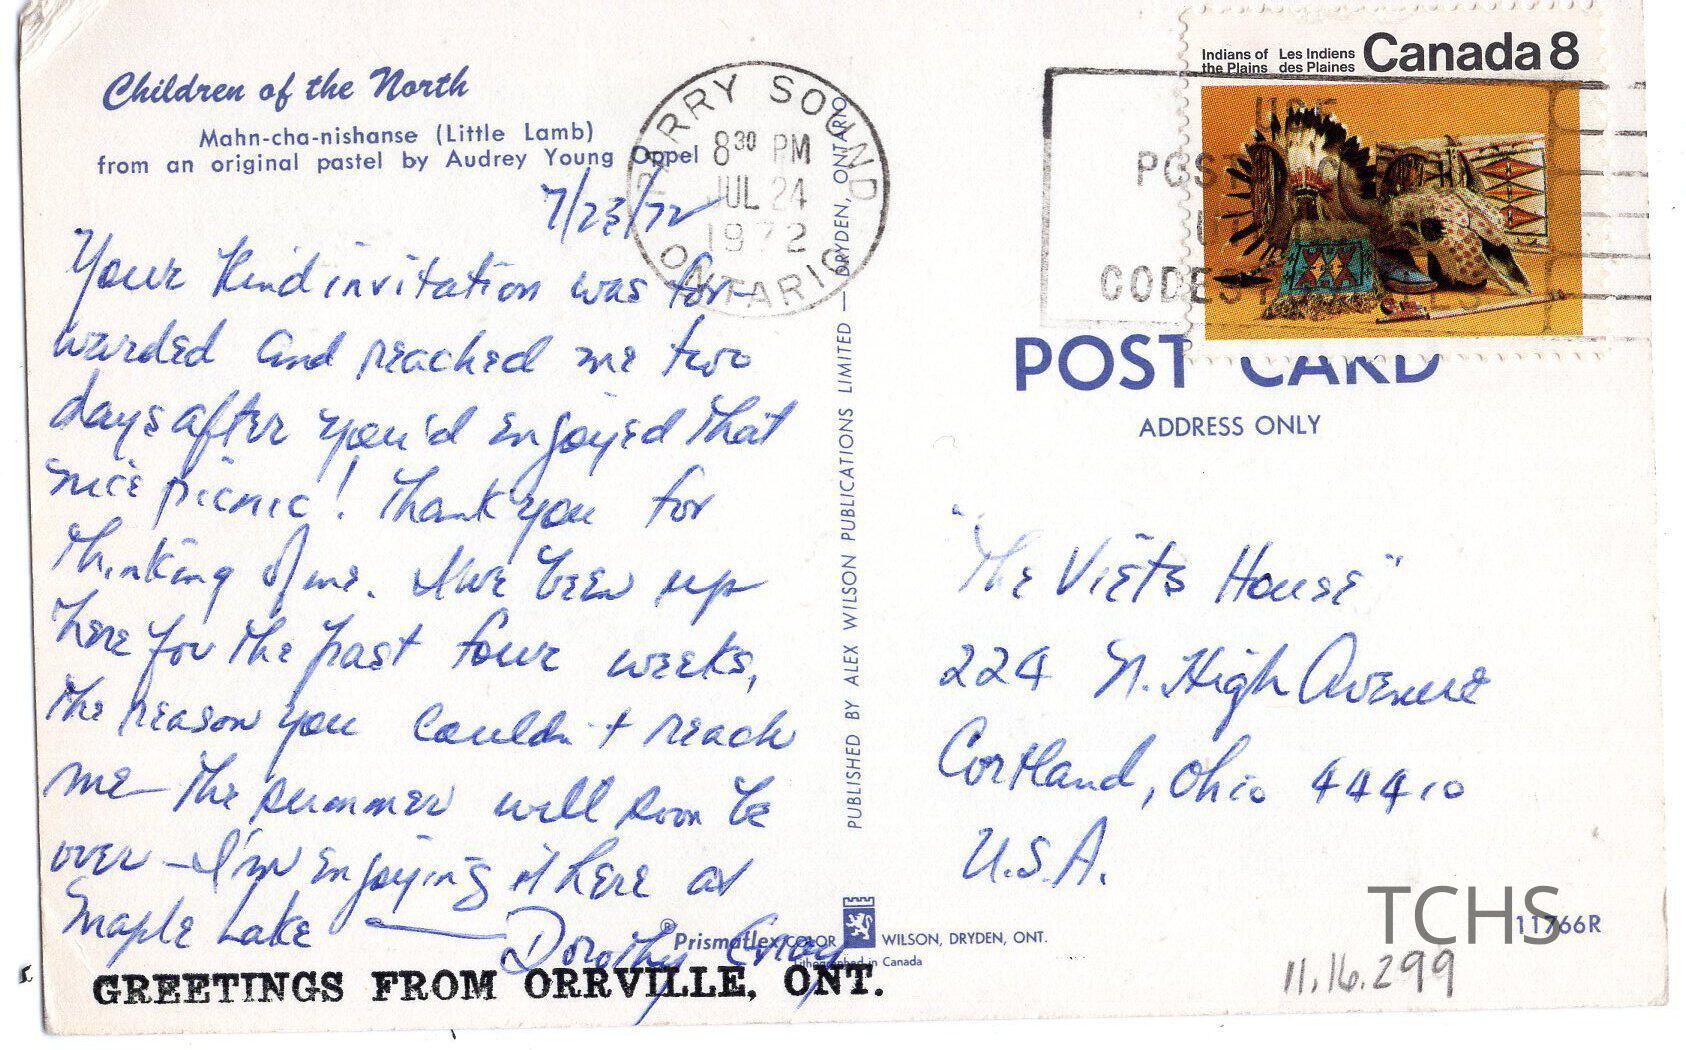 Children of the North
Mahn-cha-nishanse (Little Lamb)
from an original pastel by Audrey Young Oppel
7/23/72
Your kind invitation was for-
warded and reached me two
days after you'd enjoyed that
nice picnic! Thank you for
thinking of me. I've been up
here for the past four weeks,
the reason you couldn't reach
me — the summer will soon be
over — I'm enjoying it here at
Maple Lake — Dorothy Gray
GREETINGS FROM ORRVILLE, ONT.
PARRY SOUND
8 30 PM
JUL 24
1972
ONTARIO
PUBLISHED BY ALEX WILSON PUBLICATIONS LIMITED — DRYDEN, ONTARIO
®Prismaflex COLOR WILSON, DRYDEN, ONT.
Lithographed in Canada
Indians of the Plains Les Indiens des Plaines Canada 8
USE
POSTAL
CODES
POST CARD
ADDRESS ONLY
"The Viets House"
224 N. High Avenue
Cortland, Ohio 44410
U.S.A.
TCHS
11766R
11.16.299